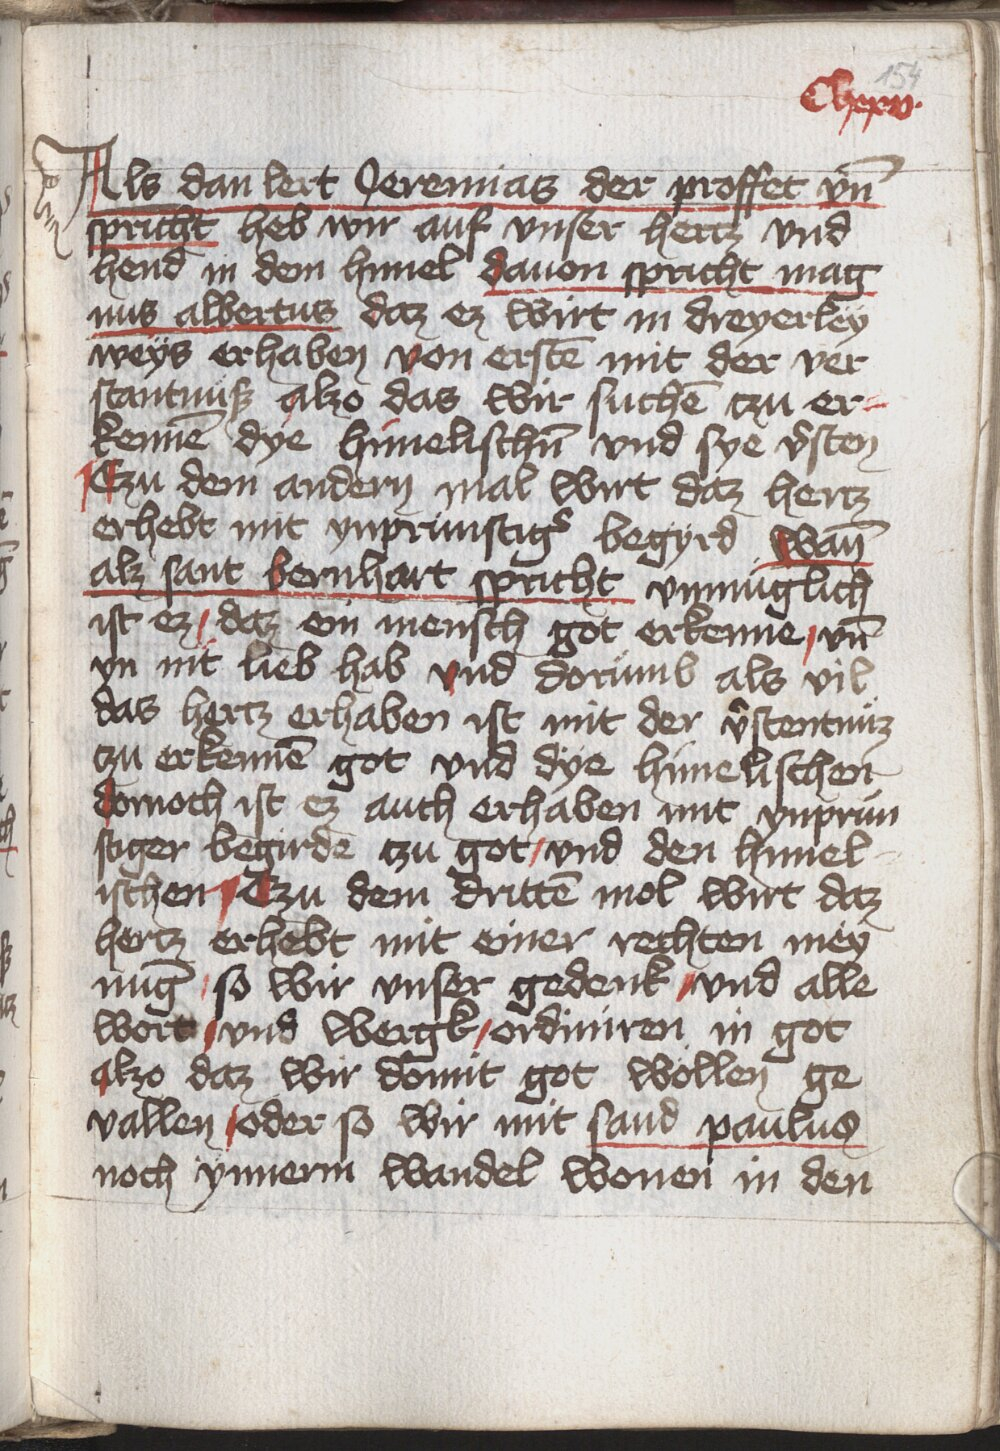 154
Als dan lert Jeremias der proffet vn̄
spricht heb wir auf vnser hertz vnd
hend in dem himel dauon spricht mag
nus albertus daz ez wirt in dreyerley
weÿs erhaben von erstē mit der ver
stantnüß alzo das wir suchē czu er-
kennē dÿe himelischn̄ vnd sye v̄sten
Czu dem andern mal wirt daz hertz
erhebt mit ynprünstigs begÿrd Wan̄
alz sant bernhart spricht vnmüglich
ist ez / daz ein mensch got erkenne / vn̄
yn nit lieb hab vnd dorümb als vil
das hertz erhaben ist mit der v̄stentnüz
czu erkennē got vnd dÿe himelischen
dornoch ist ez auch erhaben mit ynprün
stiger begirde czu got / vnd den himel-
ischen / Czu dem drittē mol wirt daz
hertz erhebt mit einer rechten meÿ
nūg / so wir vnser gedenk / vnd alle
wort / vnd wergk / ordiniren in got
alzo daz wir domit got wöllen ge
vallen / oder so wir mit sand paulus
noch ÿnnerm wandel wonen in den